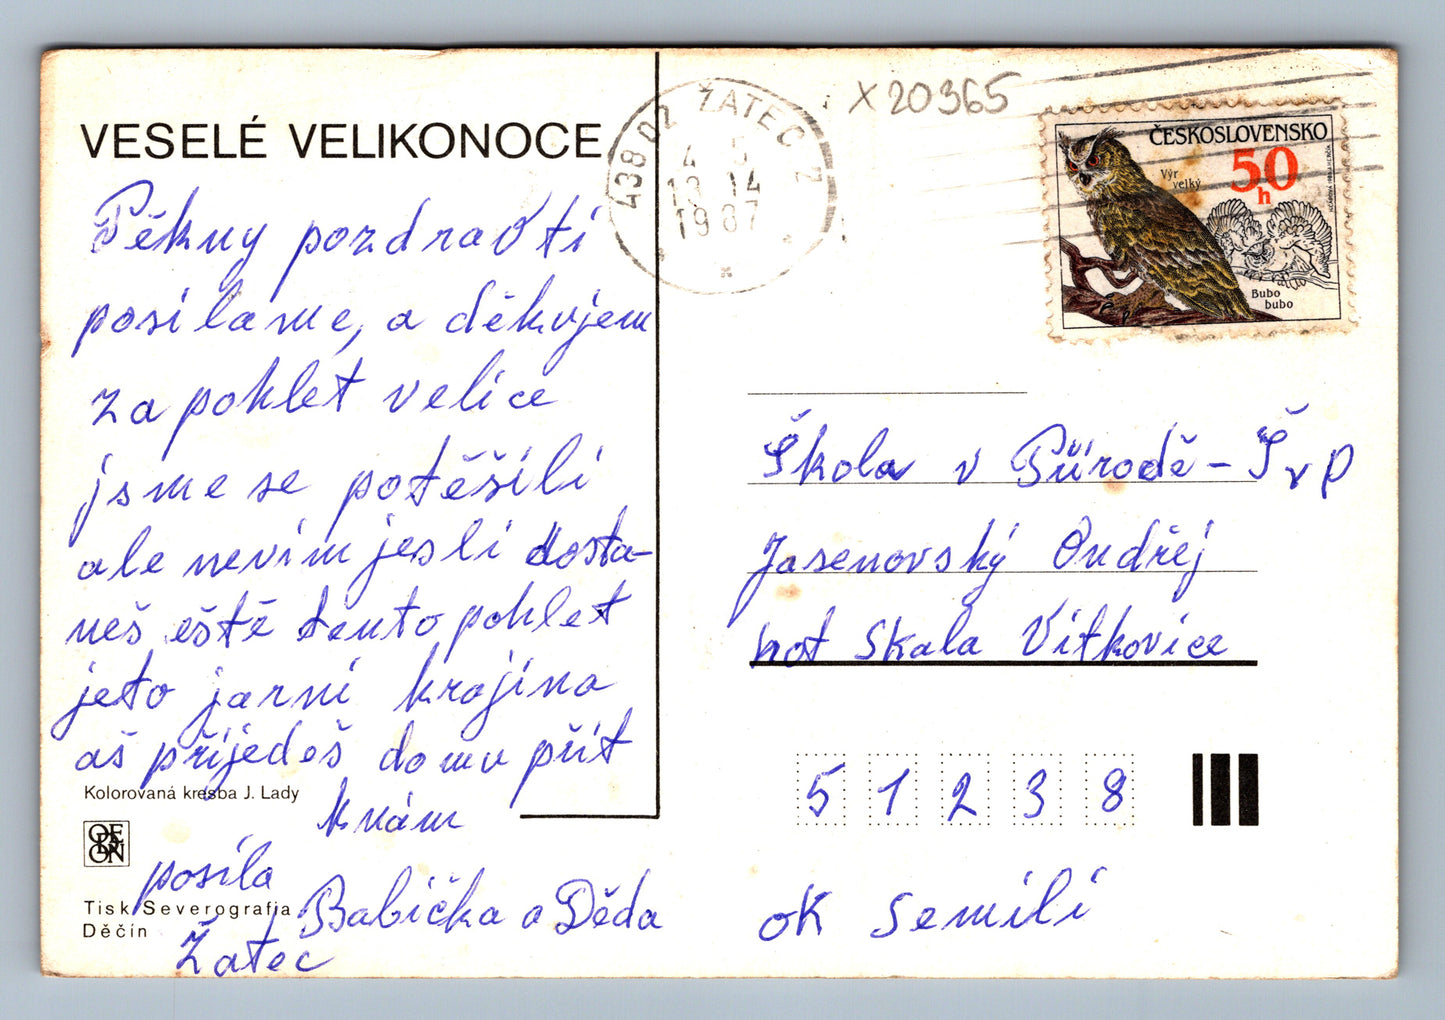 VESELÉ VELIKONOCE
Pěkny pozdrav ti
posilame, a děkujem
za pohlet velice
jsme se potěšili
ale nevím jesli dosta-
neš eště tento pohlet
jeto jarni krajina
aš přijedeš domu přít
k nám
posíla
Babička a Děda
Žatec
Kolorovaná kresba J. Lady
ORBON
Tisk Severografia
Děčín
438 02 ŽATEC 2
4. 5
13 14
1987
X 20365
ČESKOSLOVENSKO
50
h
Výr
velký
Bubo
bubo
Škola v Přírodě - ŠvP
Jasenovský Ondřej
hot Skala Vítkovice
5 1 2 3 8
ok Semili